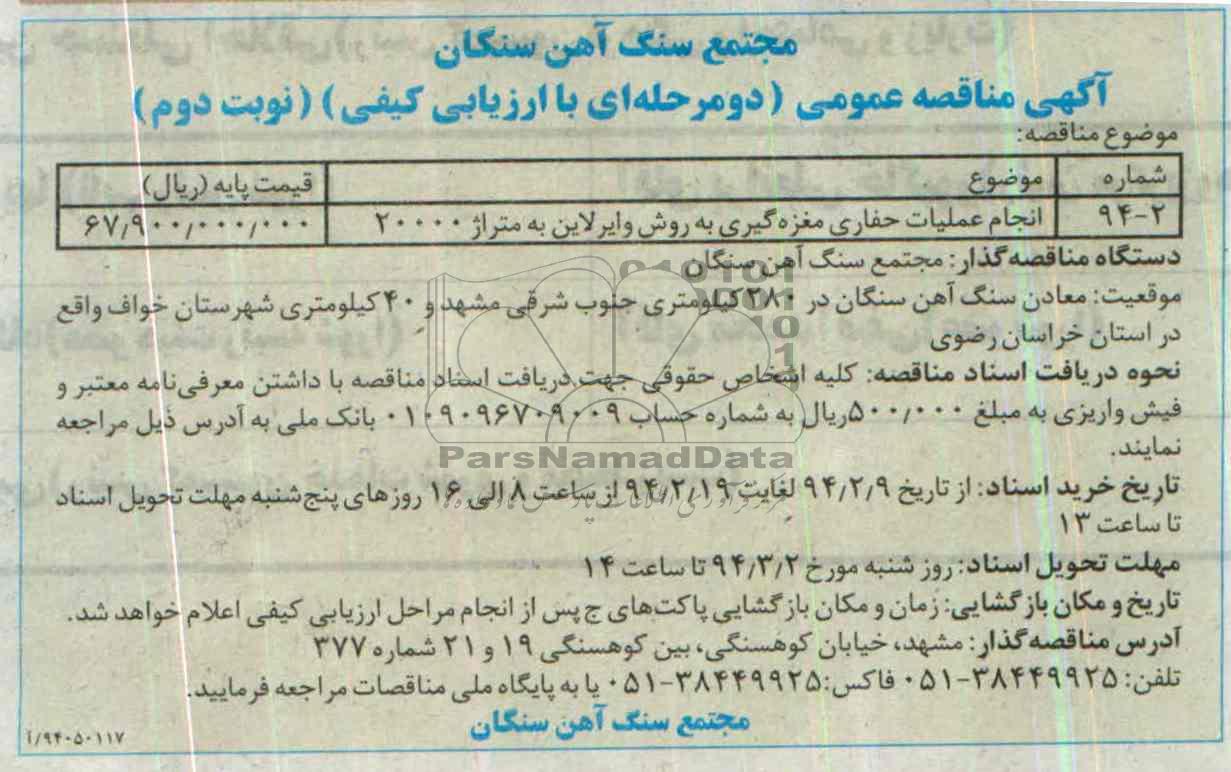 مجتمع سنگ آهن سنگان
آگهی مناقصه عمومی (دومرحله‌ای با ارزیابی کیفی) (نوبت دوم)
موضوع مناقصه:
شماره موضوع قیمت پایه (ریال)
۹۴-۲ انجام عملیات حفاری مغزه‌گیری به روش وایرلاین به متراژ ۲۰۰۰۰ ۶۷٫۹۰۰٫۰۰۰٫۰۰۰
دستگاه مناقصه‌گذار: مجتمع سنگ آهن سنگان
موقعیت: معادن سنگ آهن سنگان در ۲۸۰ کیلومتری جنوب شرقی مشهد و ۴۰ کیلومتری شهرستان خواف واقع
در استان خراسان رضوی
نحوه دریافت اسناد مناقصه: کلیه اشخاص حقوقی جهت دریافت اسناد مناقصه با داشتن معرفی‌نامه معتبر و
فیش واریزی به مبلغ ۵۰۰٫۰۰۰ریال به شماره حساب ۰۱۰۹۰۹۶۷۰۹۰۰۹ بانک ملی به آدرس ذیل مراجعه
نمایند.
ParsNamadData
تاریخ خرید اسناد: از تاریخ ۹۴٫۲٫۹ لغایت ۹۴٫۲٫۱۹ از ساعت ۸ الی ۱۶ روزهای پنج‌شنبه مهلت تحویل اسناد
تا ساعت ۱۳
مهلت تحویل اسناد: روز شنبه مورخ ۹۴٫۳٫۲ تا ساعت ۱۴
تاریخ و مکان بازگشایی: زمان و مکان بازگشایی پاکت‌های ج پس از انجام مراحل ارزیابی کیفی اعلام خواهد شد.
آدرس مناقصه‌گذار: مشهد، خیابان کوهسنگی، بین کوهسنگی ۱۹ و ۲۱ شماره ۳۷۷
تلفن: ۳۸۴۴۹۹۲۵-۰۵۱ فاکس:۳۸۴۴۹۹۲۵-۰۵۱ یا به پایگاه ملی مناقصات مراجعه فرمایید.
مجتمع سنگ آهن سنگان
۹۴۰۵۰۱۱۷/آ